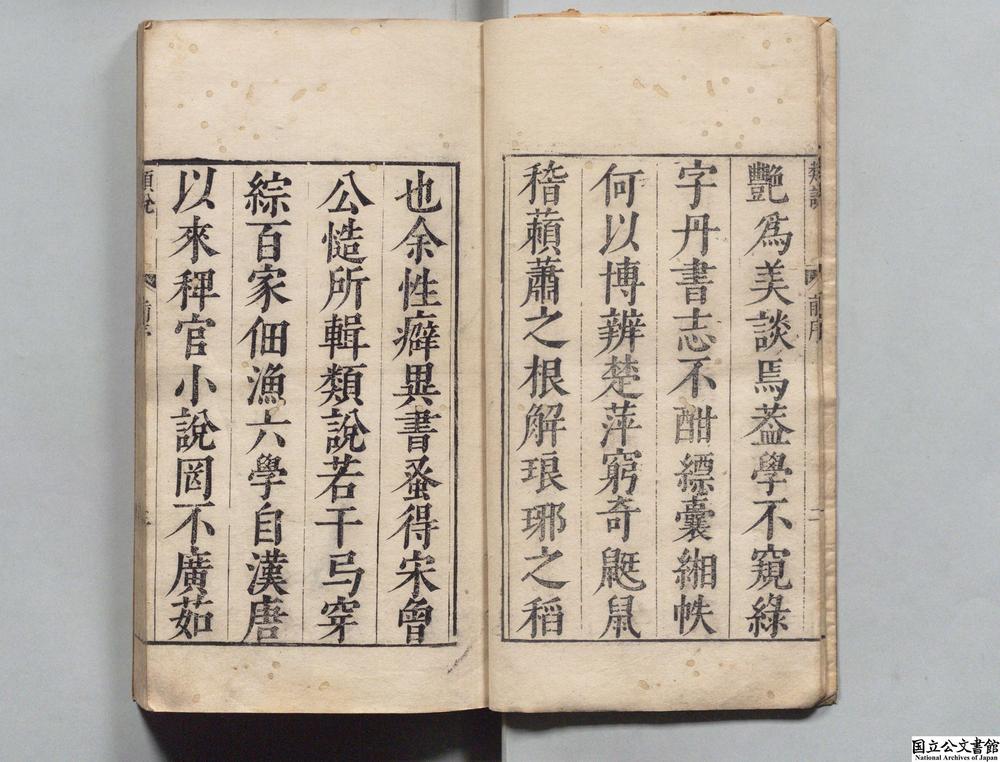 艷爲美談焉葢學不窺綠
字丹書志不酣縹囊緗帙
何以博辨楚萍窮奇鼮鼠
稽蘋蕭之根解琅琊之稻
類說
前序
二
也余性癖異書蚤得宋曾
公慥所輯類說若干弓穿
綜百家佃漁六學自漢唐
以來稗官小說罔不廣茹
類說
前序
三
国立公文書館
National Archives of Japan